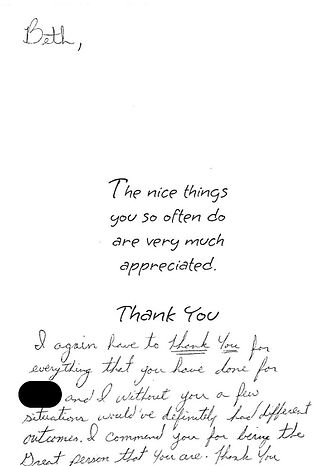 Beth,
The nice things
you so often do
are very much
appreciated.
Thank You
I again have to thank You for
everything that you have done for
and I without you a few
situations would've definitely had different
outcomes. I commend you for being the
Great person that You are. Thank You